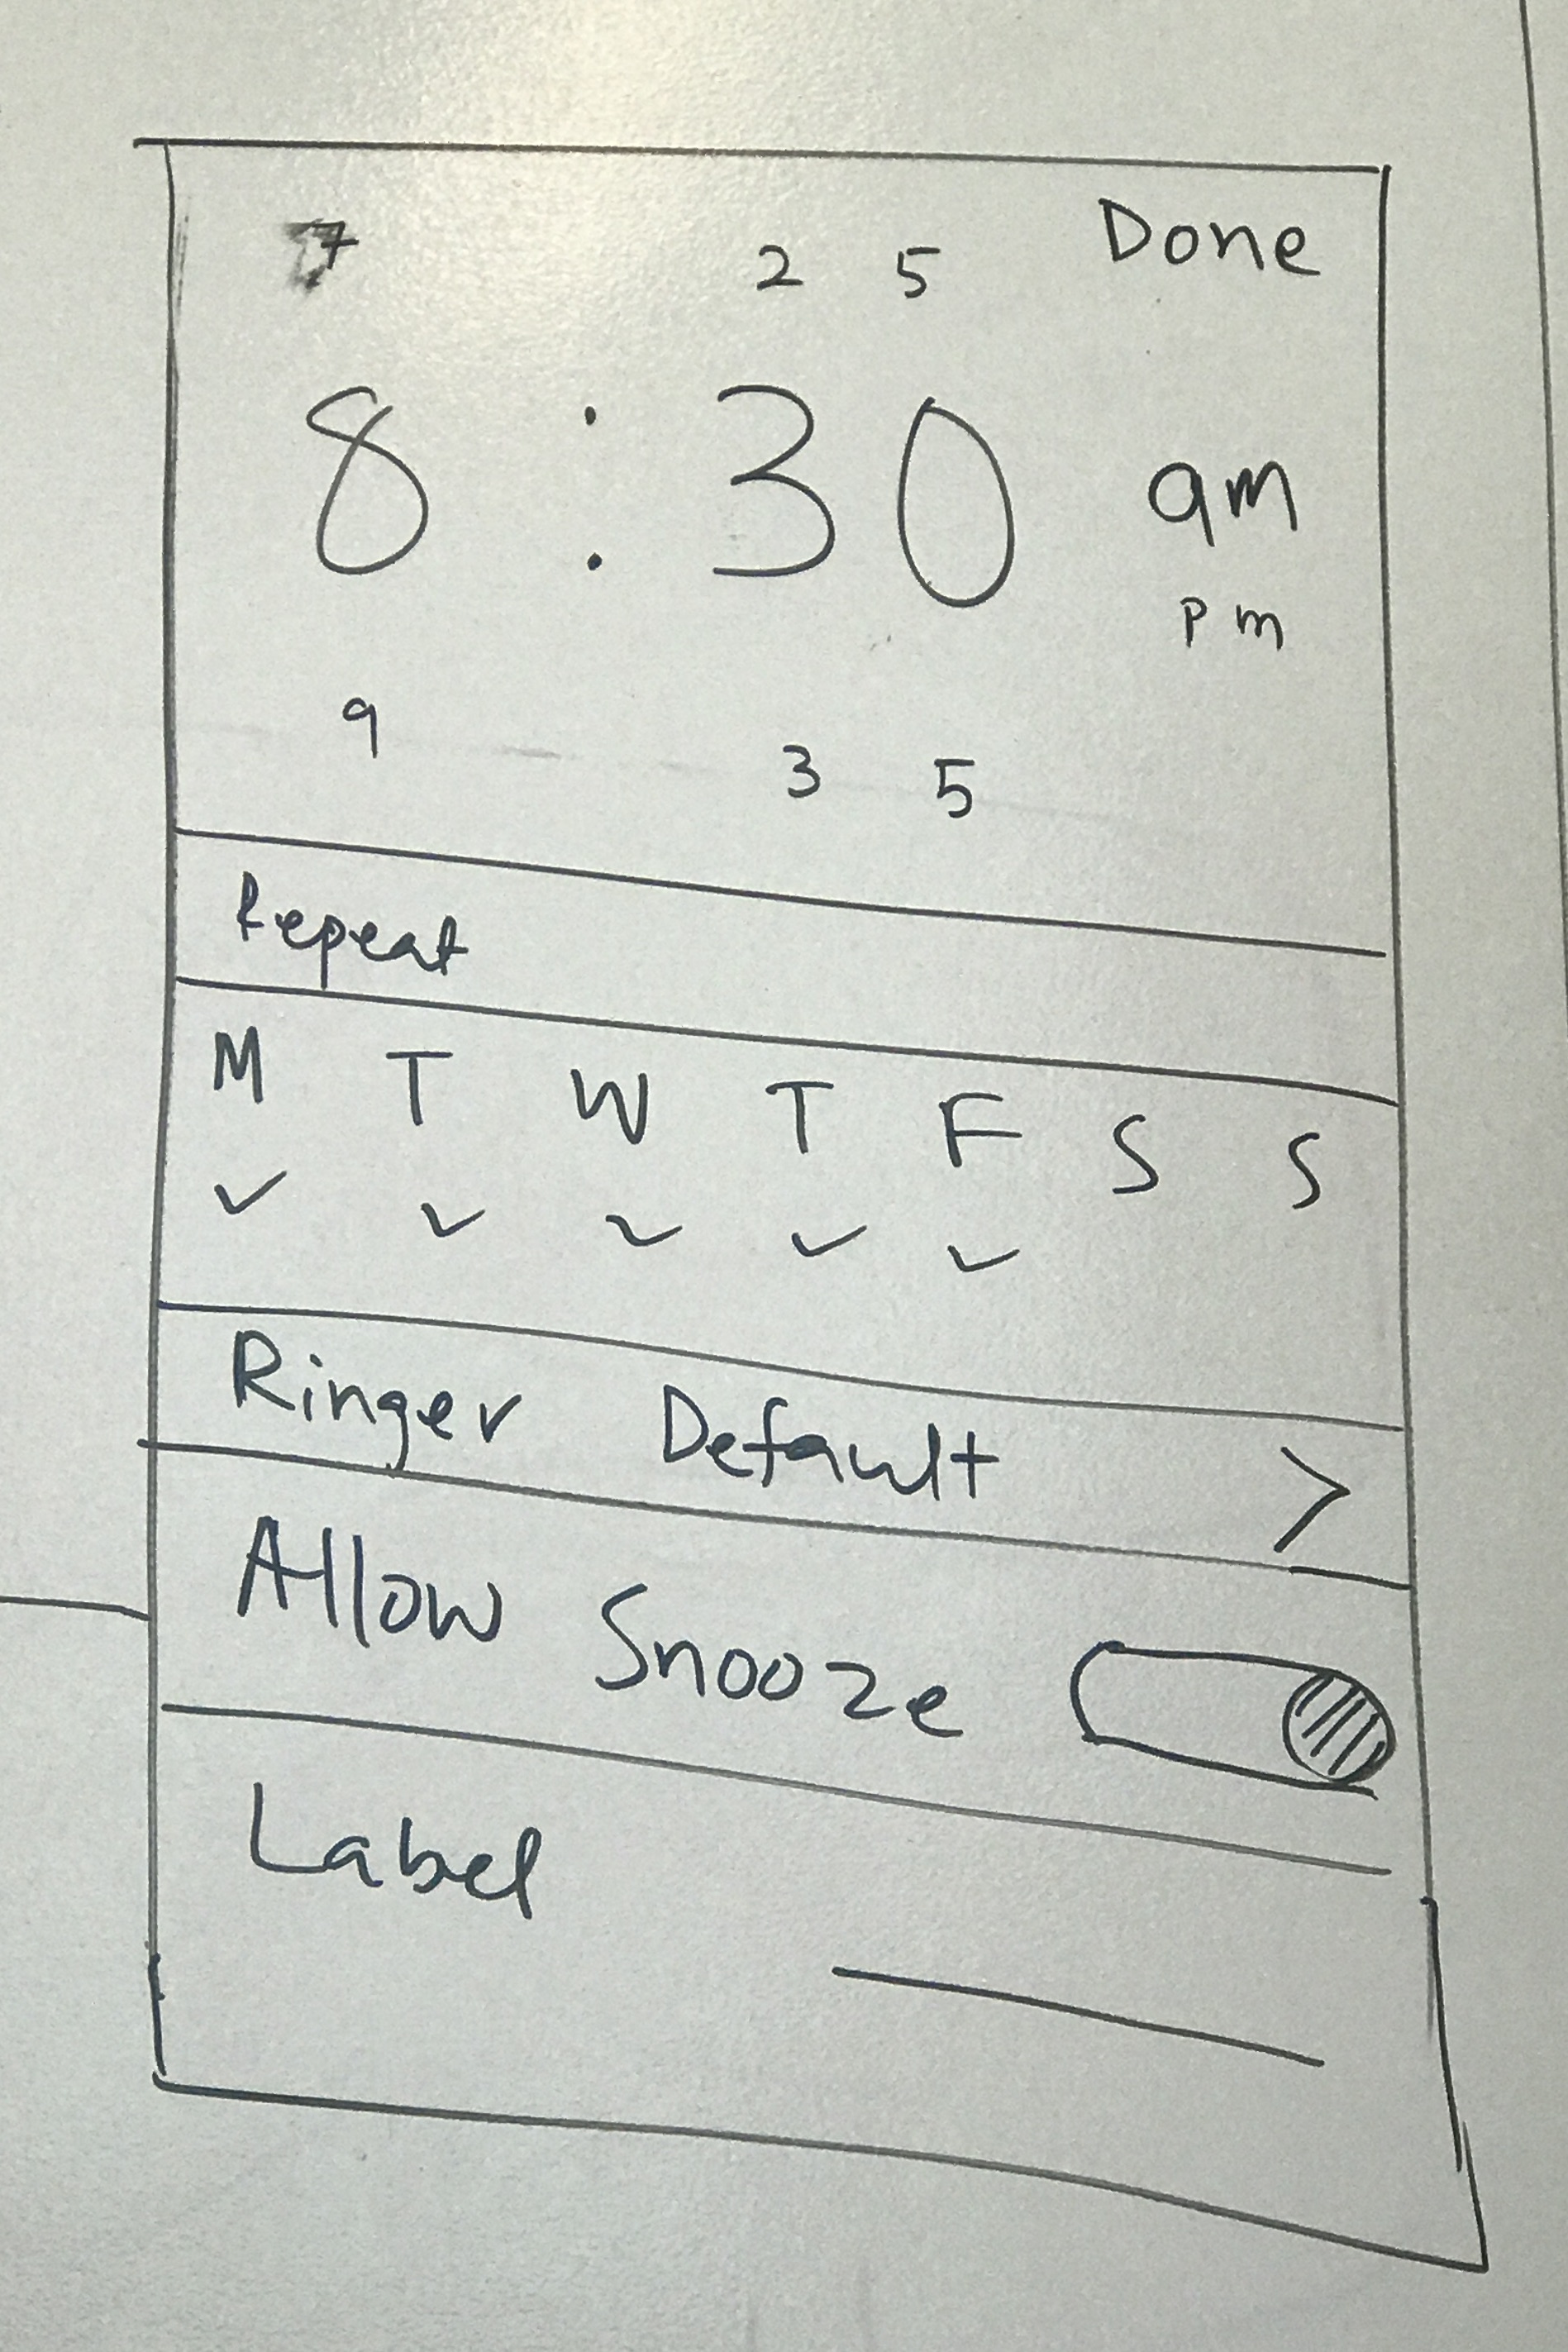 7 25 Done
8:30 am
pm
9 35
Repeat
M T W T F S S
✓ ✓ ✓ ✓ ✓
Ringer Default >
Allow Snooze
Label